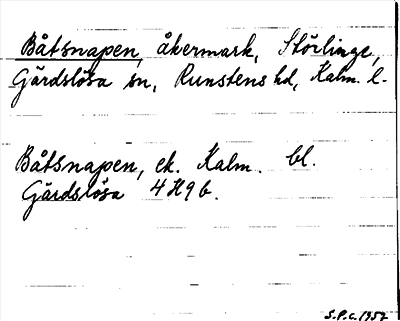 Båtsnapen, åkermark, Störlinge,
Gärdslösa sn, Runstens hd, Kalm. l.
Båtsnapen, ek. Kalm. bl.
Gärdslösa 4H9b.
S.P.C. 1957